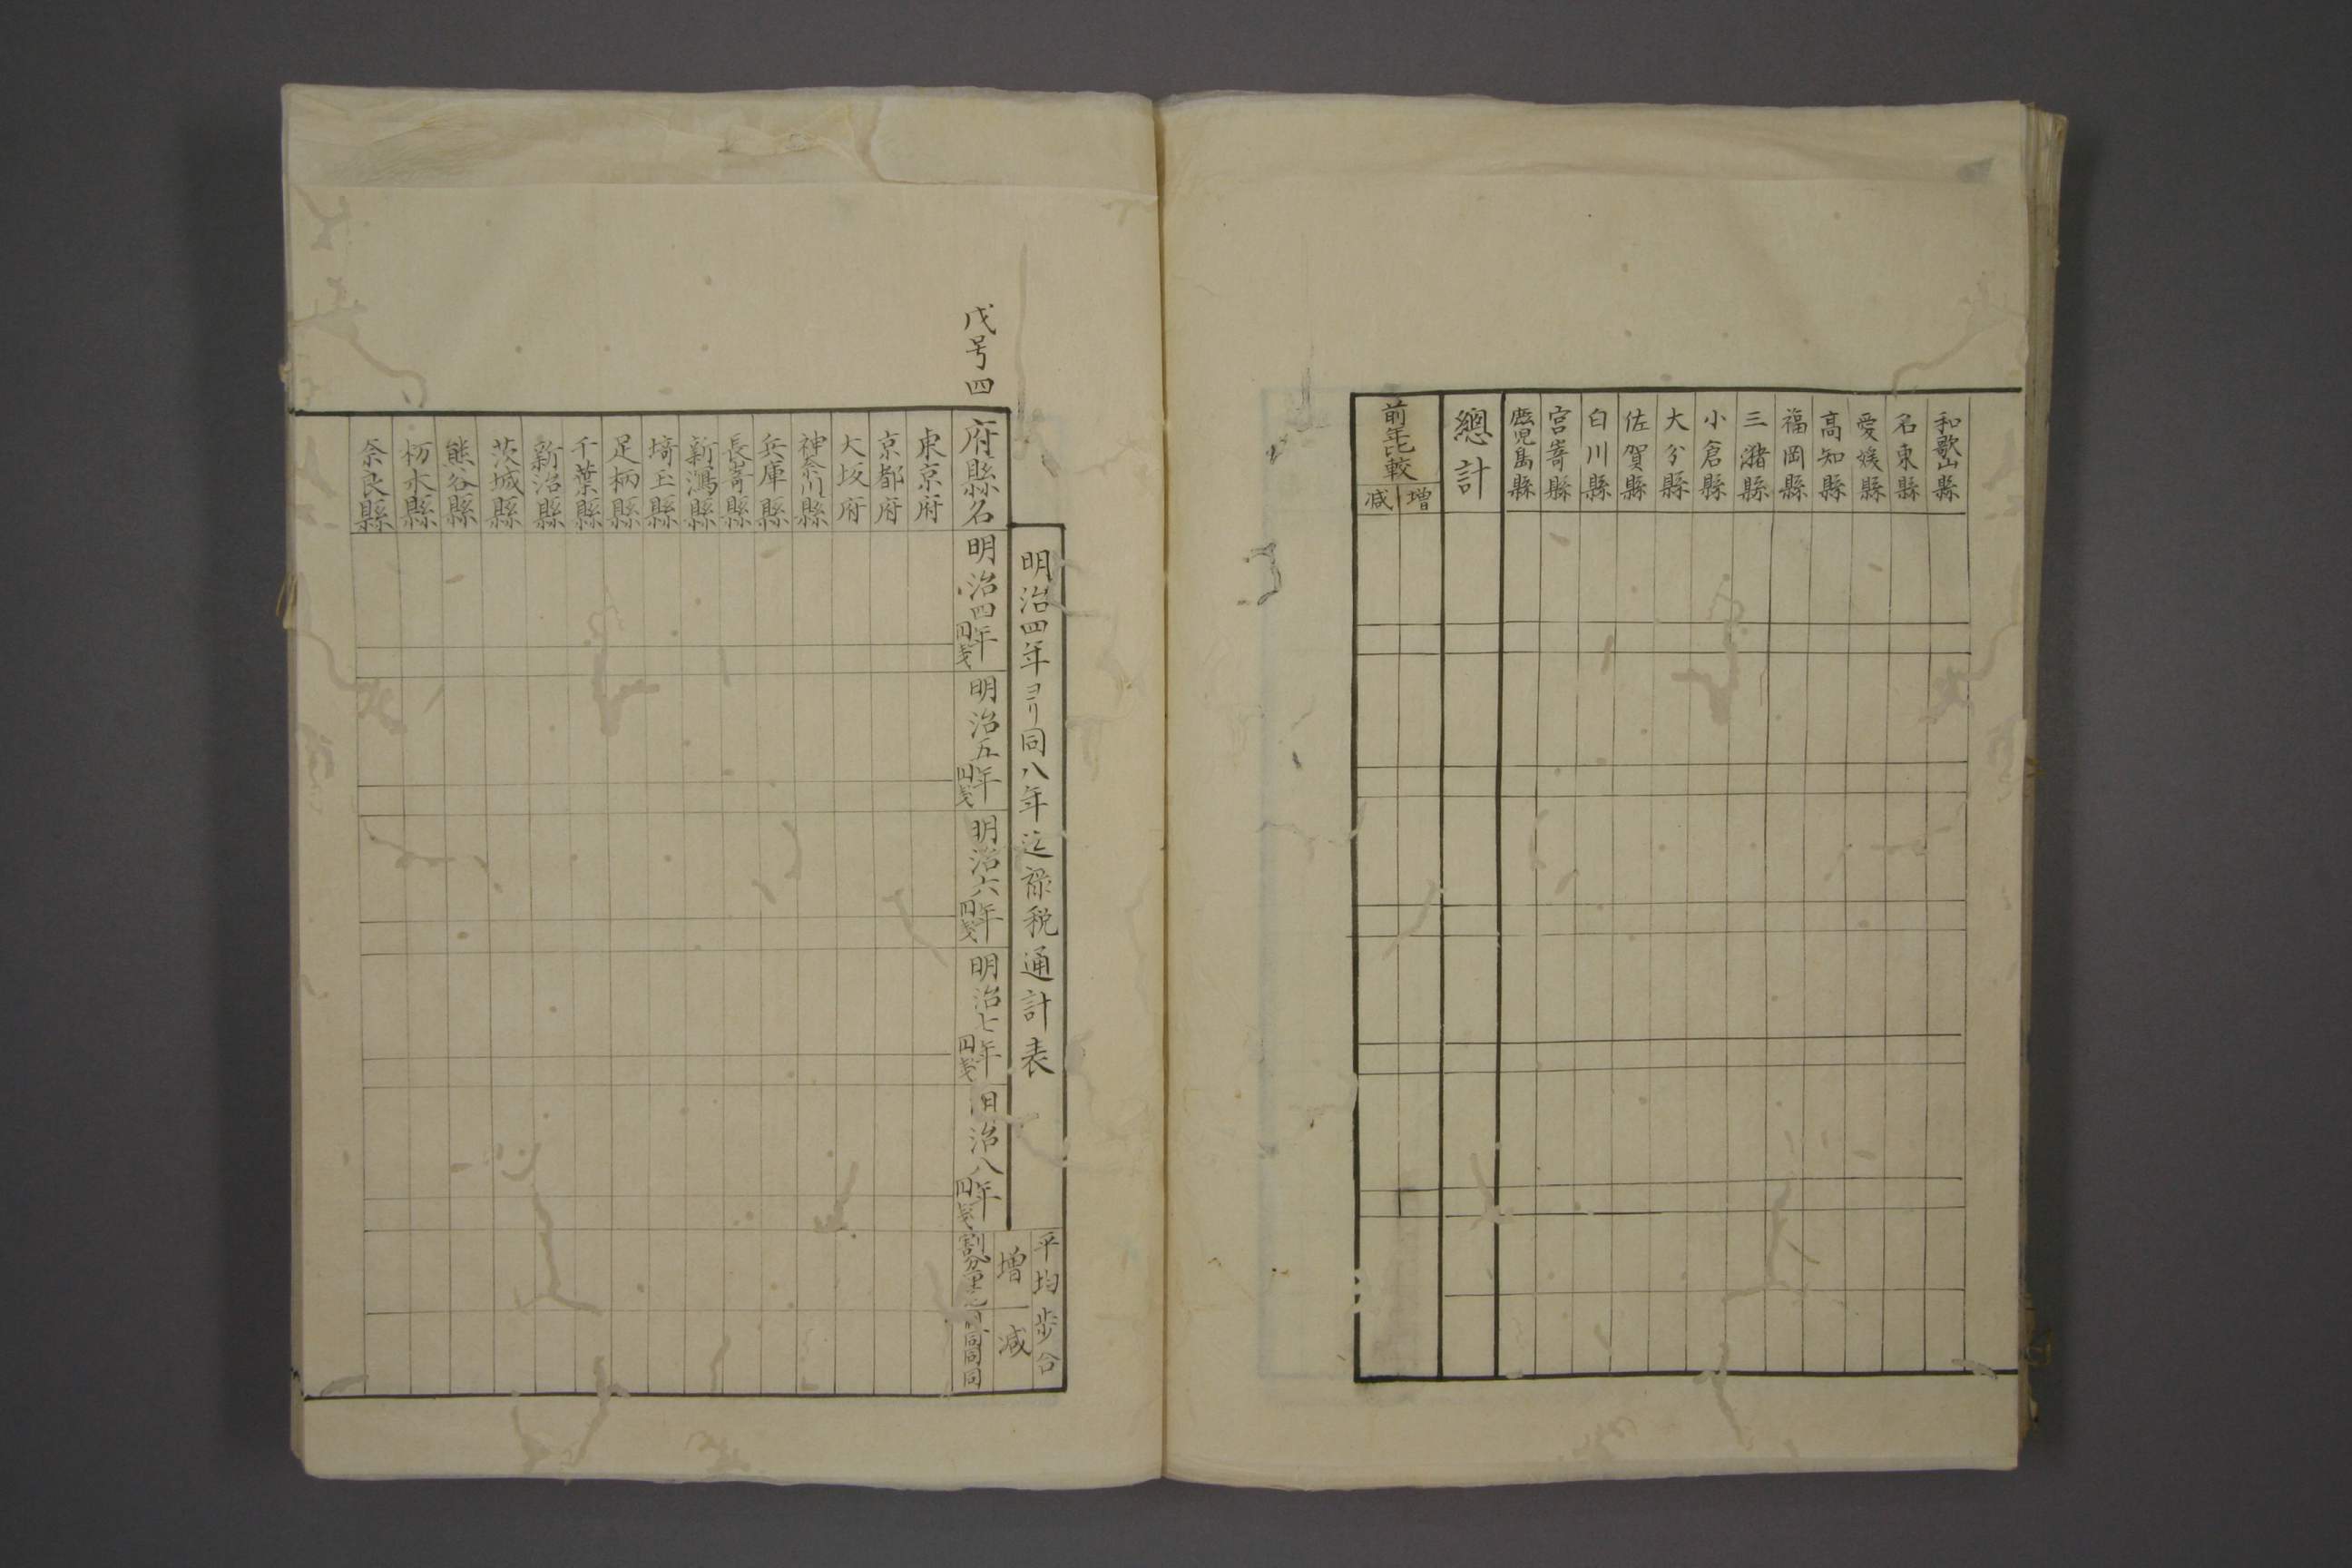 和歌山縣
名東縣
愛媛縣
高知縣
福岡縣
三潴縣
小倉縣
大分縣
佐賀縣
白川縣
宮嵜縣
鹿児島縣
總計
前年比較
増
減
戊号四
明治四年ヨリ同八年迄禄税通計表
平均歩合
増
減
府縣名
明治四年
円戋
明治五年
円戋
明治六年
円戋
明治七年
円戋
明治八年
円戋
割分厘毛
同同同
東京府
京都府
大坂府
神奈川縣
兵庫縣
長嵜縣
新潟縣
埼玉縣
足柄縣
千葉縣
新治縣
茨城縣
熊谷縣
栃木縣
奈良縣